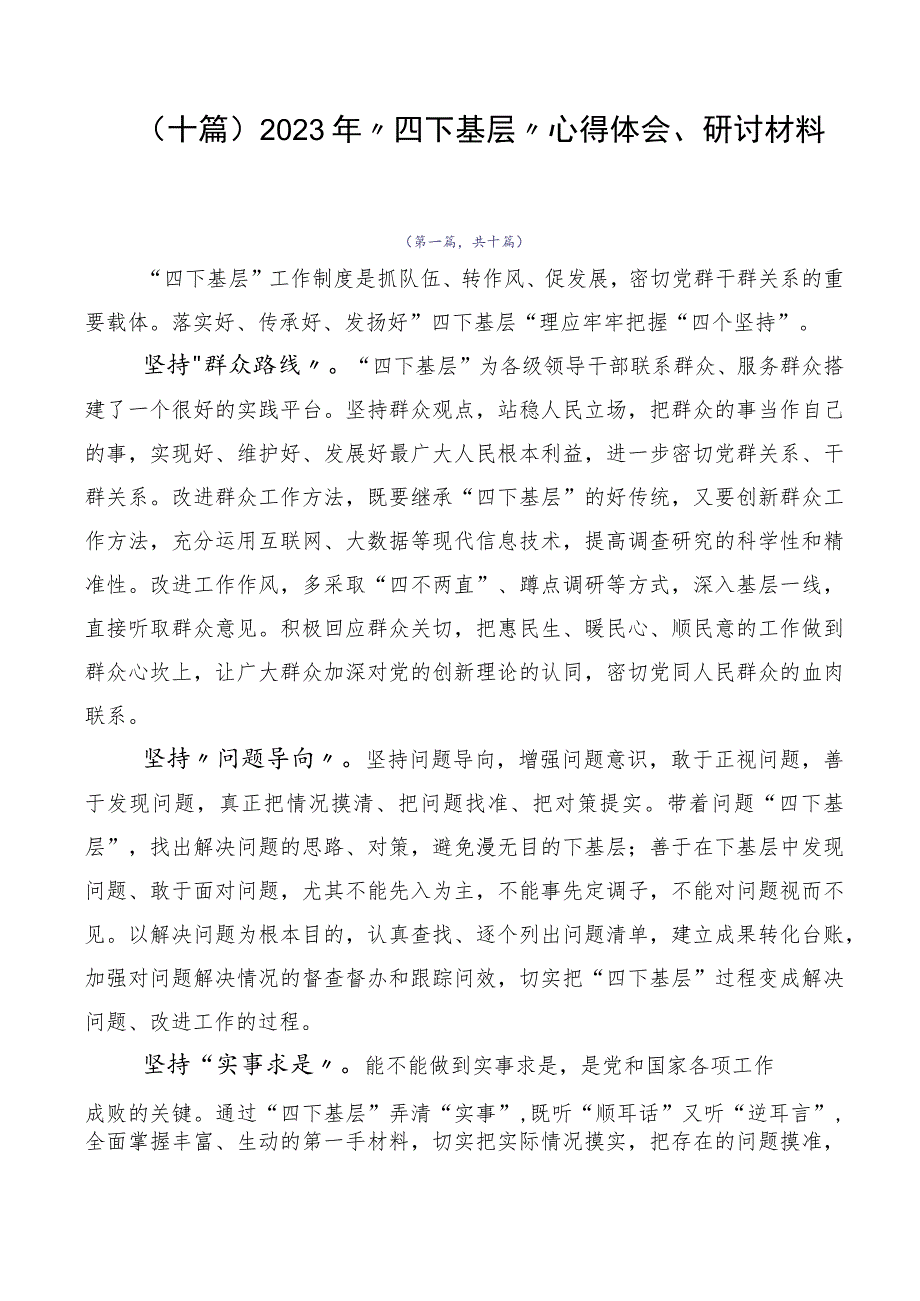 （十篇）2023年〃四下基层〃心得体会、研讨材料
（第一篇，共十篇）
“四下基层”工作制度是抓队伍、转作风、促发展，密切党群干群关系的重
要载体。落实好、传承好、发扬好”四下基层“理应牢牢把握“四个坚持”。
坚持"群众路线〃。“四下基层”为各级领导干部联系群众、服务群众搭
建了一个很好的实践平台。坚持群众观点，站稳人民立场，把群众的事当作自己
的事，实现好、维护好、发展好最广大人民根本利益，进一步密切党群关系、干
群关系。改进群众工作方法，既要继承“四下基层”的好传统，又要创新群众工
作方法，充分运用互联网、大数据等现代信息技术，提高调查研究的科学性和精
准性。改进工作作风，多采取“四不两直”、蹲点调研等方式，深入基层一线，
直接听取群众意见。积极回应群众关切，把惠民生、暖民心、顺民意的工作做到
群众心坎上，让广大群众加深对党的创新理论的认同，密切党同人民群众的血肉
联系。
坚持〃问题导向〃。坚持问题导向，增强问题意识，敢于正视问题，善
于发现问题，真正把情况摸清、把问题找准、把对策提实。带着问题“四下基
层”，找出解决问题的思路、对策，避免漫无目的下基层；善于在下基层中发现
问题、敢于面对问题，尤其不能先入为主，不能事先定调子，不能对问题视而不
见。以解决问题为根本目的，认真查找、逐个列出问题清单，建立成果转化台账，
加强对问题解决情况的督查督办和跟踪问效，切实把“四下基层”过程变成解决
问题、改进工作的过程。
坚持“实事求是〃。能不能做到实事求是，是党和国家各项工作
成败的关键。通过“四下基层”弄清“实事”,既听“顺耳话”又听“逆耳言”,
全面掌握丰富、生动的第一手材料，切实把实际情况摸实，把存在的问题摸准，